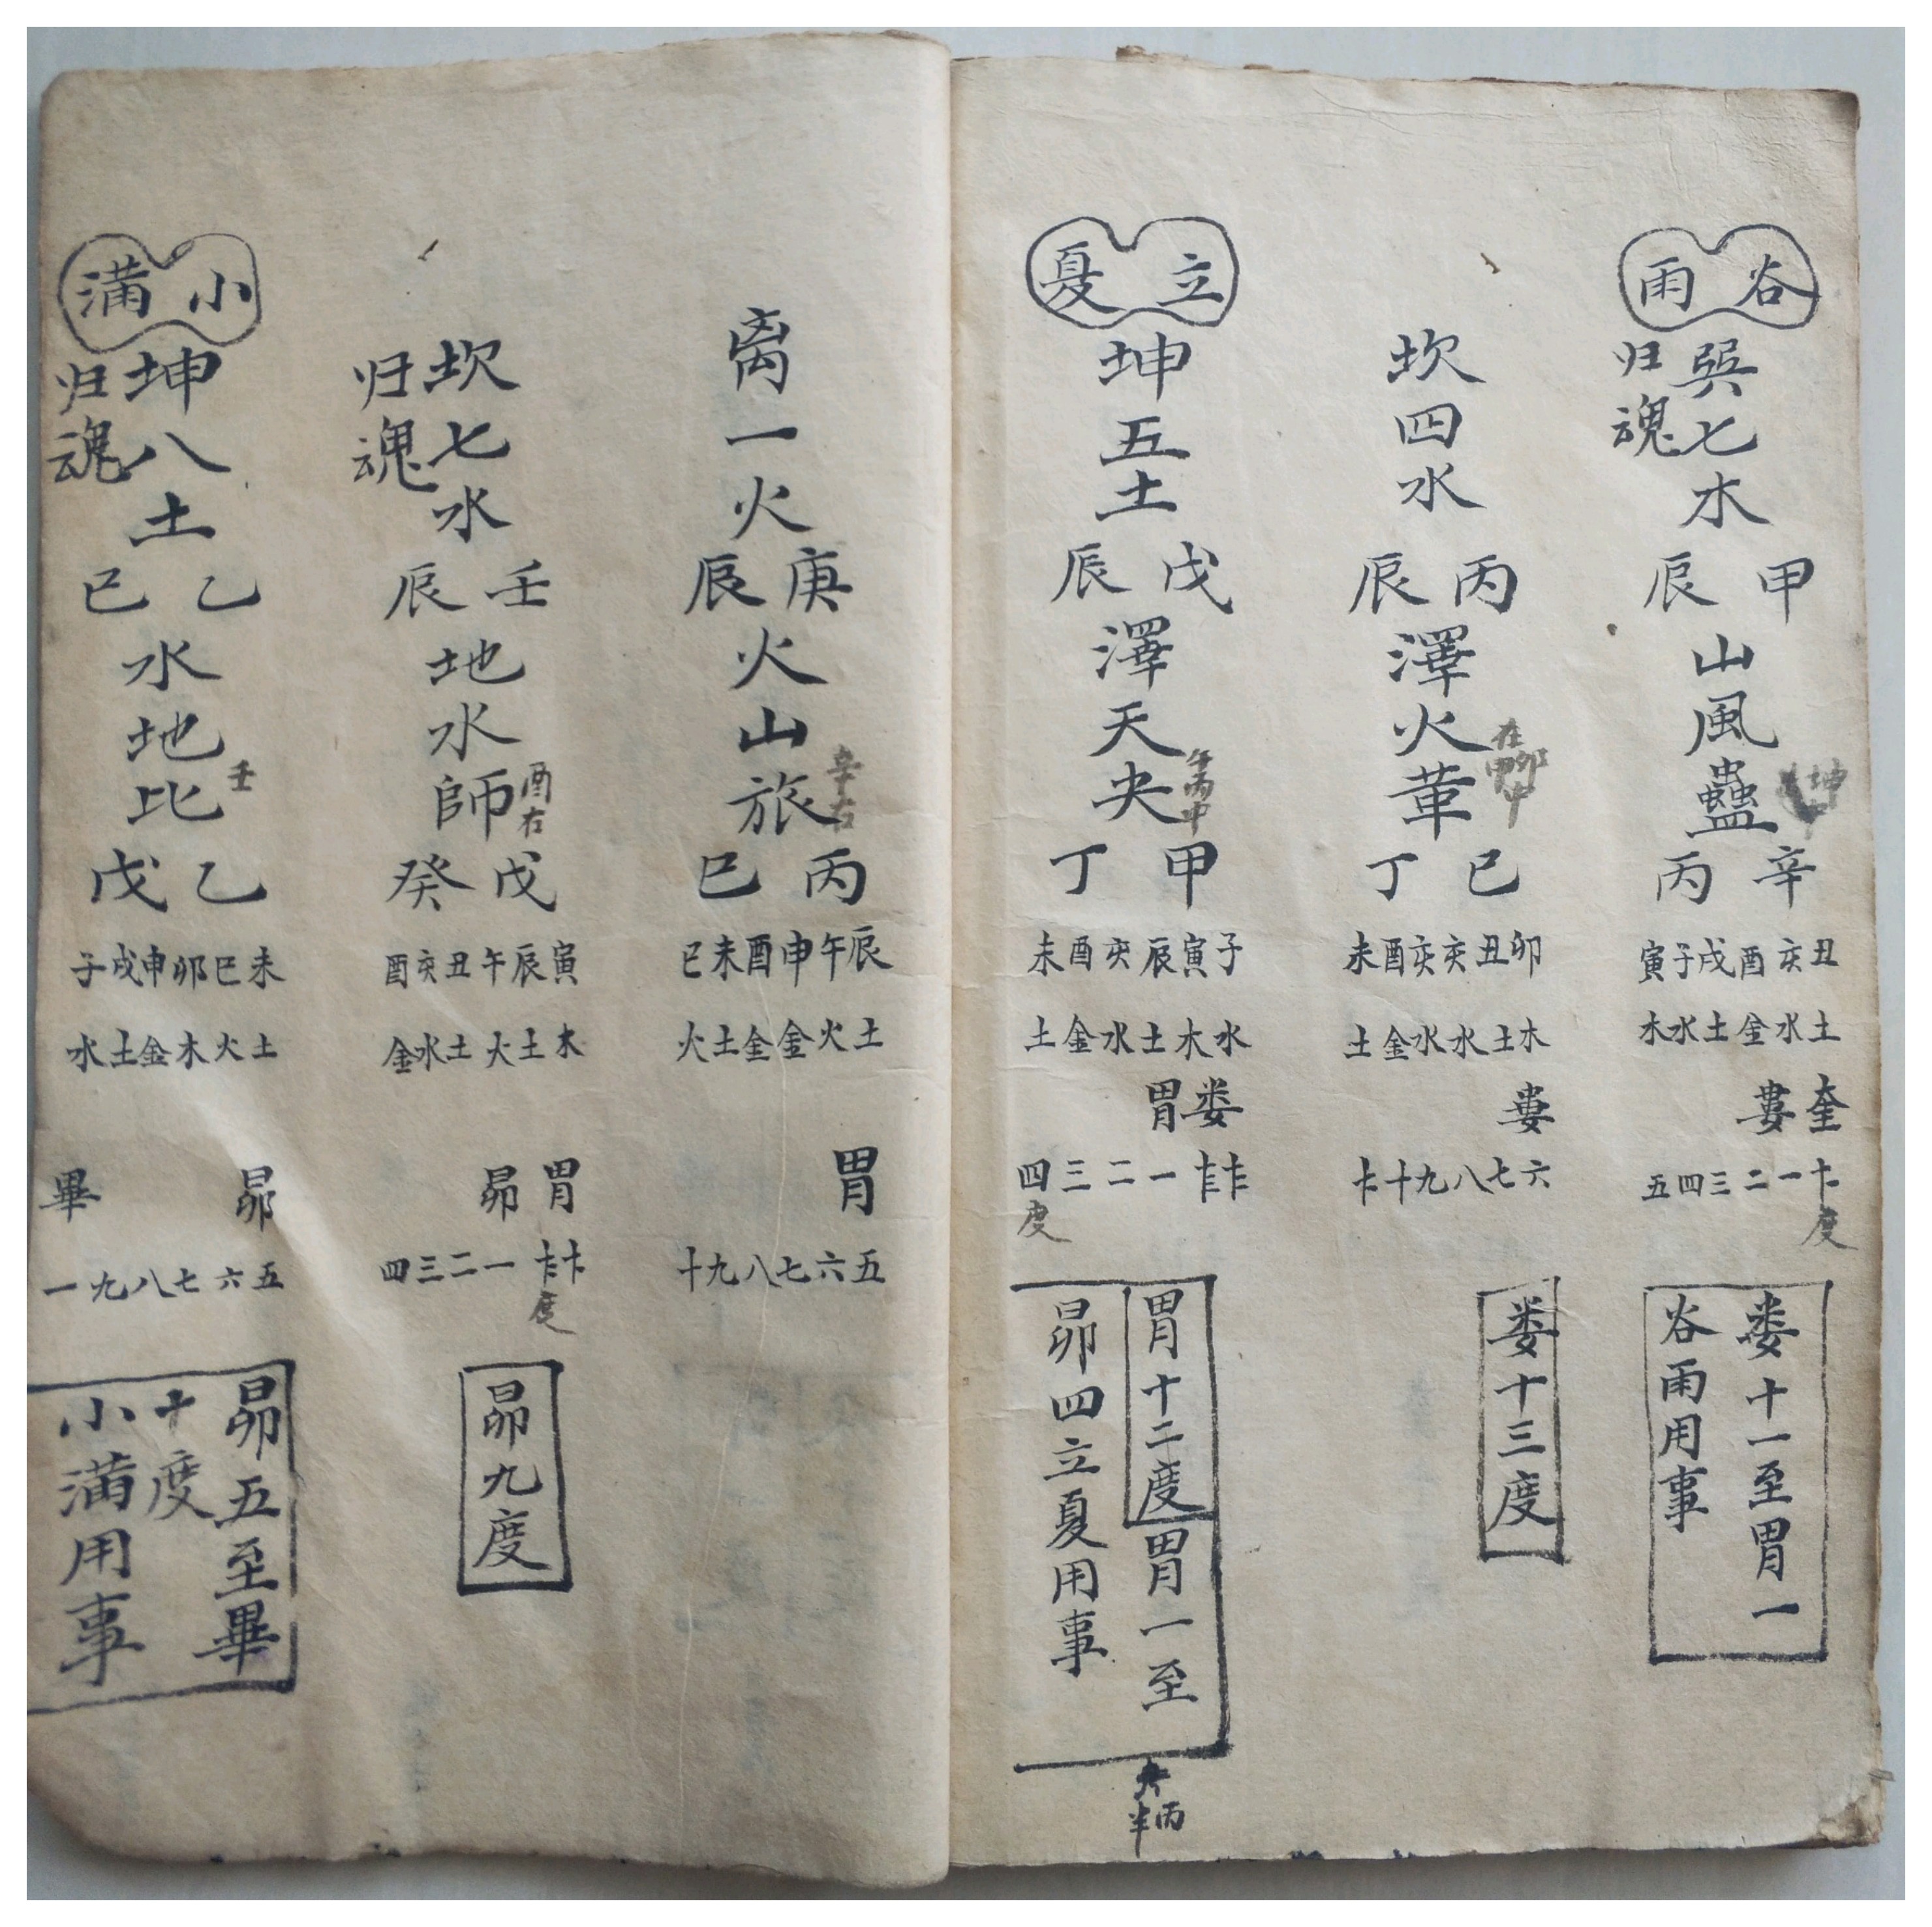 谷雨
巽七木
归魂
甲辰
山風蠱
辛丙
丑亥酉戌子寅
土水金土水木
奎婁
一二三四五
度
婁十一至胃一
谷雨用事
坎四水
丙辰
澤火革
在
巳丁
卯丑亥亥酉未
木土水水金土
婁
六七八九十
婁十三度
立夏
坤五土
戊辰
澤天夬
午丙中
甲丁
子寅辰亥酉未
水木土水金土
娄胃
一二三四
度
胃十二度
胃一至
昴四立夏用事
丙
半
离一火
庚辰
火山旅
辛右
丙巳
辰午申酉未巳
土火金金土火
胃
五六七八九十
坎七水
归魂
壬辰
地水師
酉右
戊癸
寅辰午丑亥酉
木土火土水金
胃昴
一二三四
度
昴九度
小满
坤八土
归魂
乙巳
水地比
壬
乙戊
未巳卯申戌子
土火木金土水
昴畢
五六七八九一
昴五至畢
十度
小满用事